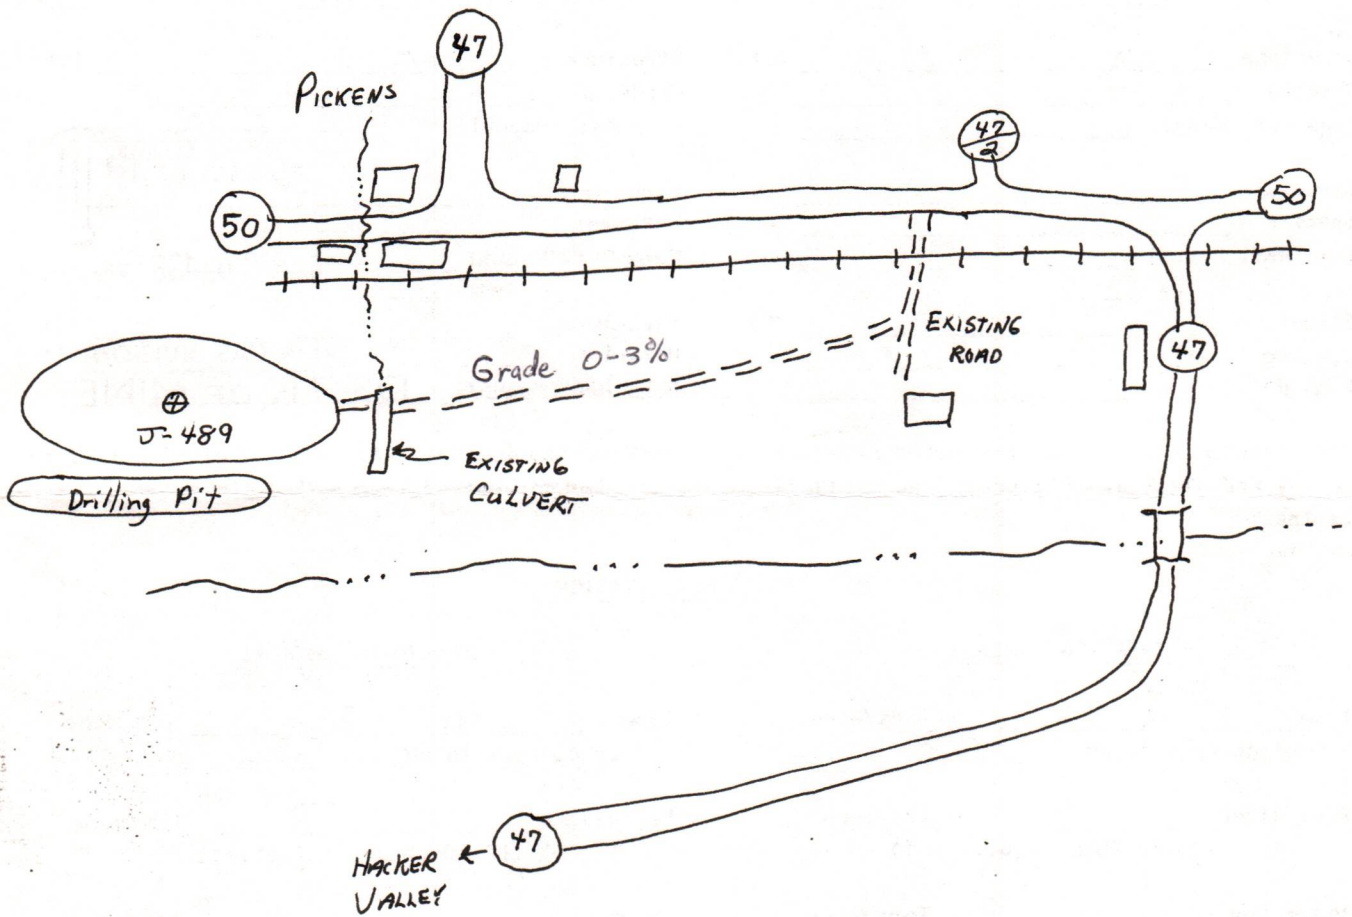 47
PICKENS
47
2
50
50
EXISTING
ROAD
47
Grade 0-3%
J-489
EXISTING
CULVERT
Drilling Pit
47
HACKER
VALLEY